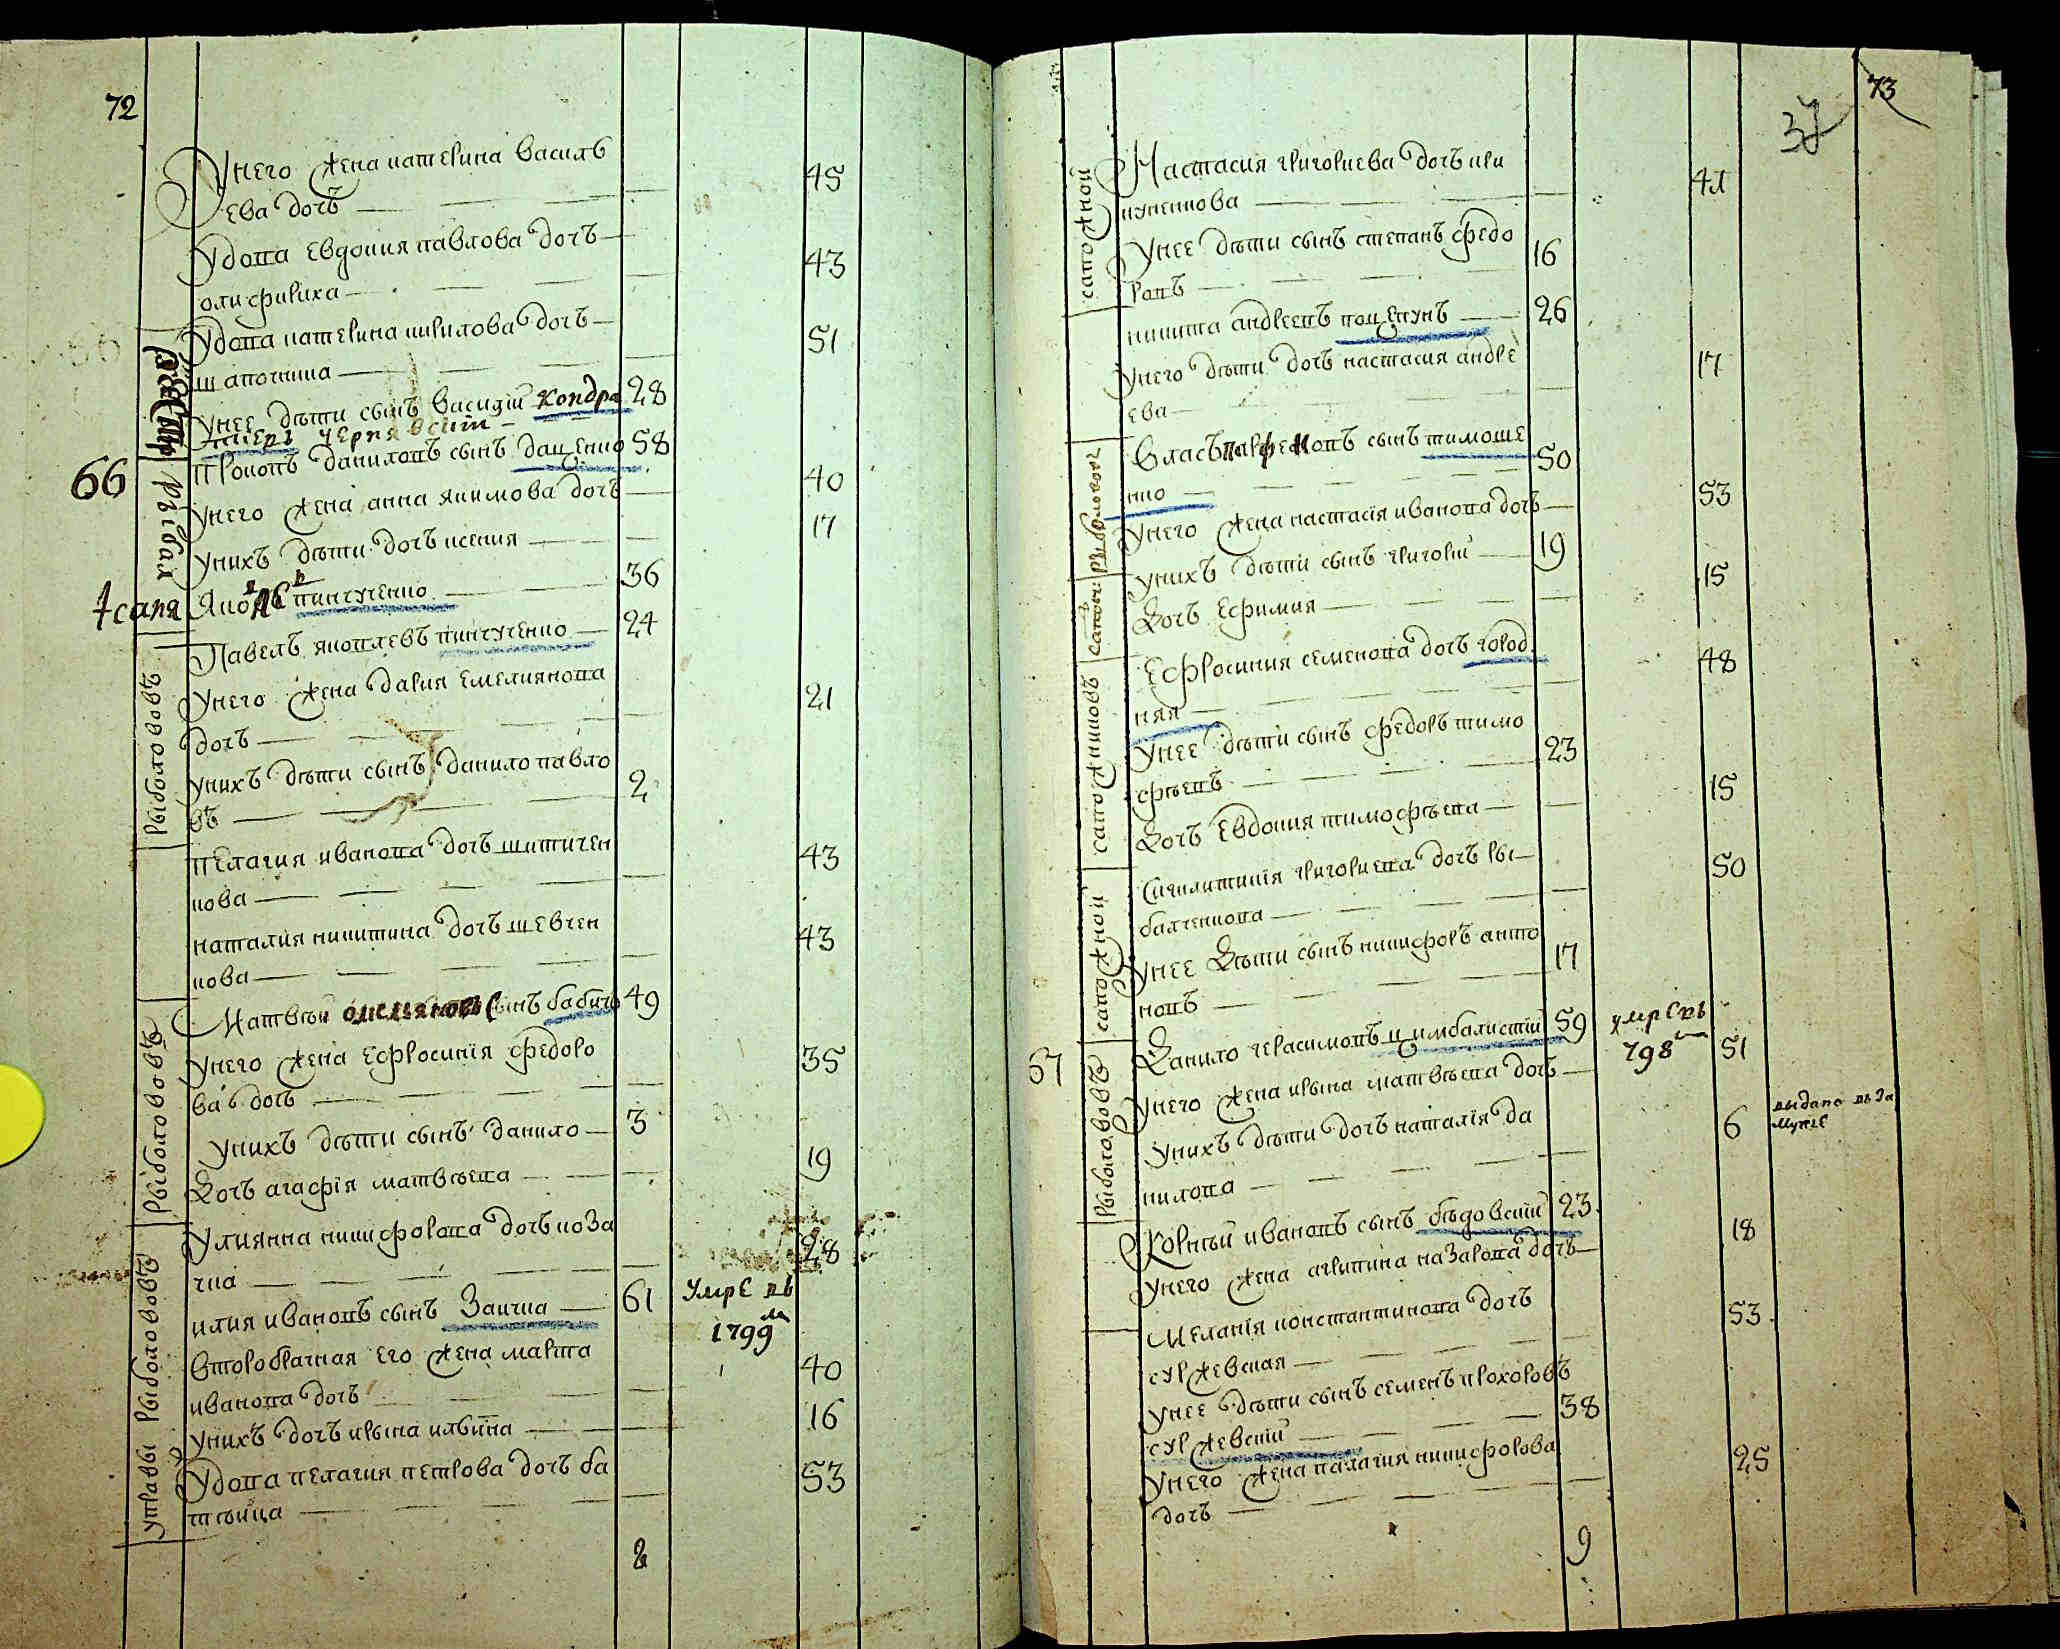 72
У него жена катерина василь
ева дочь
45
Удова евдокия павлова дочь
олифириха
43
Удова катерина кирилова дочь
шапочкина
51
У нее дѣти сынъ василий Кондра
28
теперь Чернявский
66
Прокопъ даниловъ сынъ даценко
58
У него жена анна якимова дочь
40
У нихъ дѣти дочь ксения
17
пинчученко
36
Павелъ яковлевъ пинчученко
24
У него жена дария емелиянова
дочь
21
У нихъ дѣти сынъ данило павло
въ
2
пелагия иванова дочь шипичен
кова
43
наталия никитина дочь шевчен
кова
43
Матвѣй сынъ бабичъ
49
У него жена ефросиния федоро
ва дочь
35
У нихъ дѣти сынъ данило
3
Дочь агафия матвѣева
19
Улиянна никифорова дочь коза
чка
28
илия ивановъ сынъ Заичка
61
умре въ
1799
второбрачная его жена марта
иванова дочь
40
У нихъ дочь ирина ильина
16
Удова пелагия петрова дочь ба
53
2
рыболововъ
рыболововъ
управы рыболововъ
73
37
сапожной
Настасия григориева дочь кри
41
У нее дѣти сынъ степанъ федо
ровъ
16
никита андреевъ коцегунъ
26
У него дѣти дочь настасия андре
ева
17
Власъ парфеновъ сынъ тимоше
нко
50
У него жена настасия иванова дочь
53
У нихъ дѣти сынъ григорий
19
Дочь ефимия
15
Ефросиния семенова дочь город
няя
48
У нее дѣти сынъ федоръ тимо
фѣевъ
23
Дочь евдокия тимофѣева
15
сапожниковъ
Сиклитикия григориева дочь ры
балченкова
50
сапожной
У нее Дѣти сынъ никифоръ анто
новъ
17
67
Данило герасимовъ цимбалистий
59
умре въ
798
У него жена ирина матвѣева дочь
51
У нихъ дѣти дочь наталия да
нилова
6
выдана въ за
мужЕ
рыболововъ
Корнѣй ивановъ сынъ бѣдовский
23
У него жена агрипина назарова дочь
18
Мелания константинова дочь
суржевская
53
У нее дѣти сынъ семенъ прохоровъ
суржевский
38
У него жена палагия никифорова
дочь
25
9